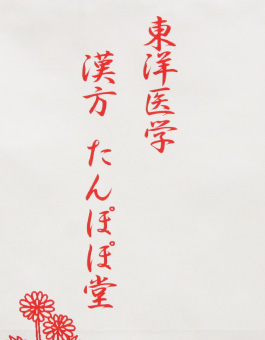 東洋医学
漢方 たんぽぽ堂